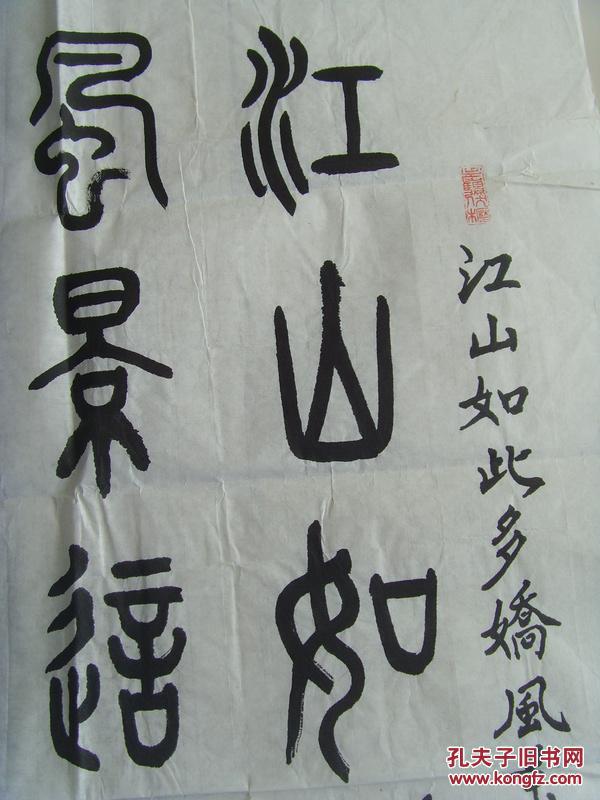 江山如此多嬌風
江山如
風景這
孔夫子旧书网
www.kongfz.com